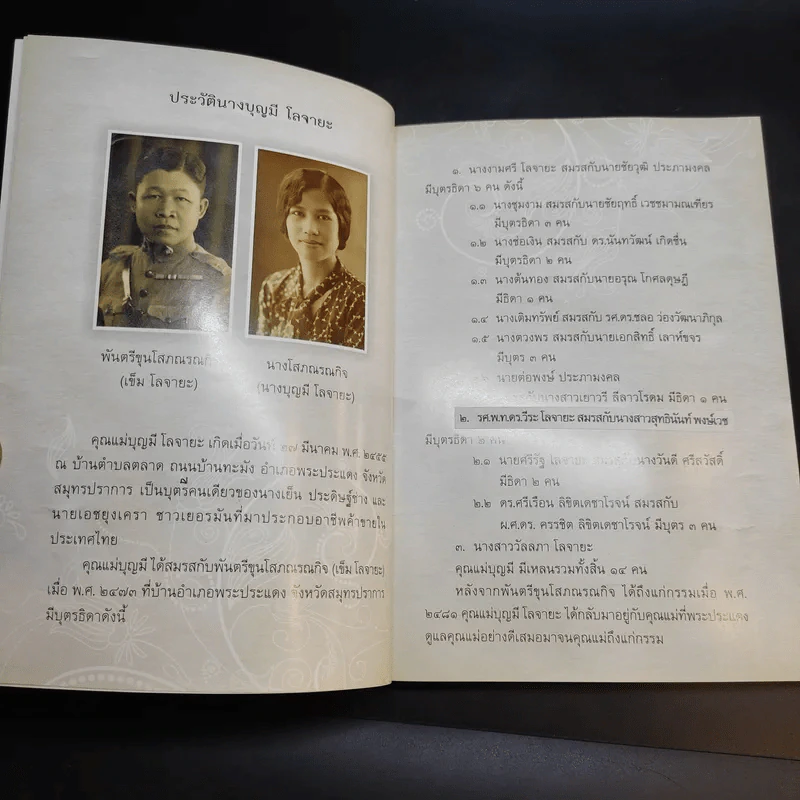 ประวัตินางบุญมี โลจายะ
พันตรีขุนโสภณรณกิจ
(เข็ม โลจายะ)
นางโสภณรณกิจ
(นางบุญมี โลจายะ)
คุณแม่บุญมี โลจายะ เกิดเมื่อวันที่ ๒๗ มีนาคม พ.ศ. ๒๔๕๕
ณ บ้านตำบลตลาด ถนนบ้านทะมัง อำเภอพระประแดง จังหวัด
สมุทรปราการ เป็นบุตรีคนเดียวของนางเย็น ประดิษฐ์ช่าง และ
นายเอชยุงเครา ชาวเยอรมันที่มาประกอบอาชีพค้าขายใน
ประเทศไทย
คุณแม่บุญมี ได้สมรสกับพันตรีขุนโสภณรณกิจ (เข็ม โลจายะ)
เมื่อ พ.ศ. ๒๔๗๓ ที่บ้านอำเภอพระประแดง จังหวัดสมุทรปราการ
มีบุตรธิดาดังนี้
๑. นางงามศรี โลจายะ สมรสกับนายชัยวุฒิ ประภามงคล
มีบุตรธิดา ๖ คน ดังนี้
๑.๑ นางชุมงาม สมรสกับนายชัยฤทธิ์ เวชชมามณเฑียร
มีบุตรธิดา ๓ คน
๑.๒ นางช่อเงิน สมรสกับ ดร.นันทวัฒน์ เกิดชื่น
มีบุตรธิดา ๒ คน
๑.๓ นางต้นทอง สมรสกับนายอรุณ โกศลดุษฎี
มีธิดา ๑ คน
๑.๔ นางเติมทรัพย์ สมรสกับ รศ.ดร.ชลอ ว่องวัฒนาภิกุล
๑.๕ นางตวงพร สมรสกับนายเอกสิทธิ์ เลาห์ขจร
มีบุตร ๓ คน
นายต่อพงษ์ ประภามงคล
กับนางสาวเยาวรี ลีลาวโรดม มีธิดา ๑ คน
๒. รศ.พ.ท.ดร.วีระ โลจายะ สมรสกับนางสาวสุทธินันท์ พงษ์เวช
มีบุตรธิดา ๒ คน
๒.๑ นายศรีรัฐ โลจายะ สมรสกับนางวันดี ศรีสวัสดิ์
มีธิดา ๒ คน
๒.๒ ดร.ศรีเรือน ลิขิตเดชาโรจน์ สมรสกับ
ผ.ศ.ดร. ครรชิต ลิขิตเดชาโรจน์ มีบุตร ๓ คน
๓. นางสาววัลลภา โลจายะ
คุณแม่บุญมี มีเหลนรวมทั้งสิ้น ๑๔ คน
หลังจากพันตรีขุนโสภณรณกิจ ได้ถึงแก่กรรมเมื่อ พ.ศ.
๒๔๘๑ คุณแม่บุญมี โลจายะ ได้กลับมาอยู่กับคุณแม่ที่พระประแดง
ดูแลคุณแม่อย่างดีเสมอมาจนคุณแม่ถึงแก่กรรม